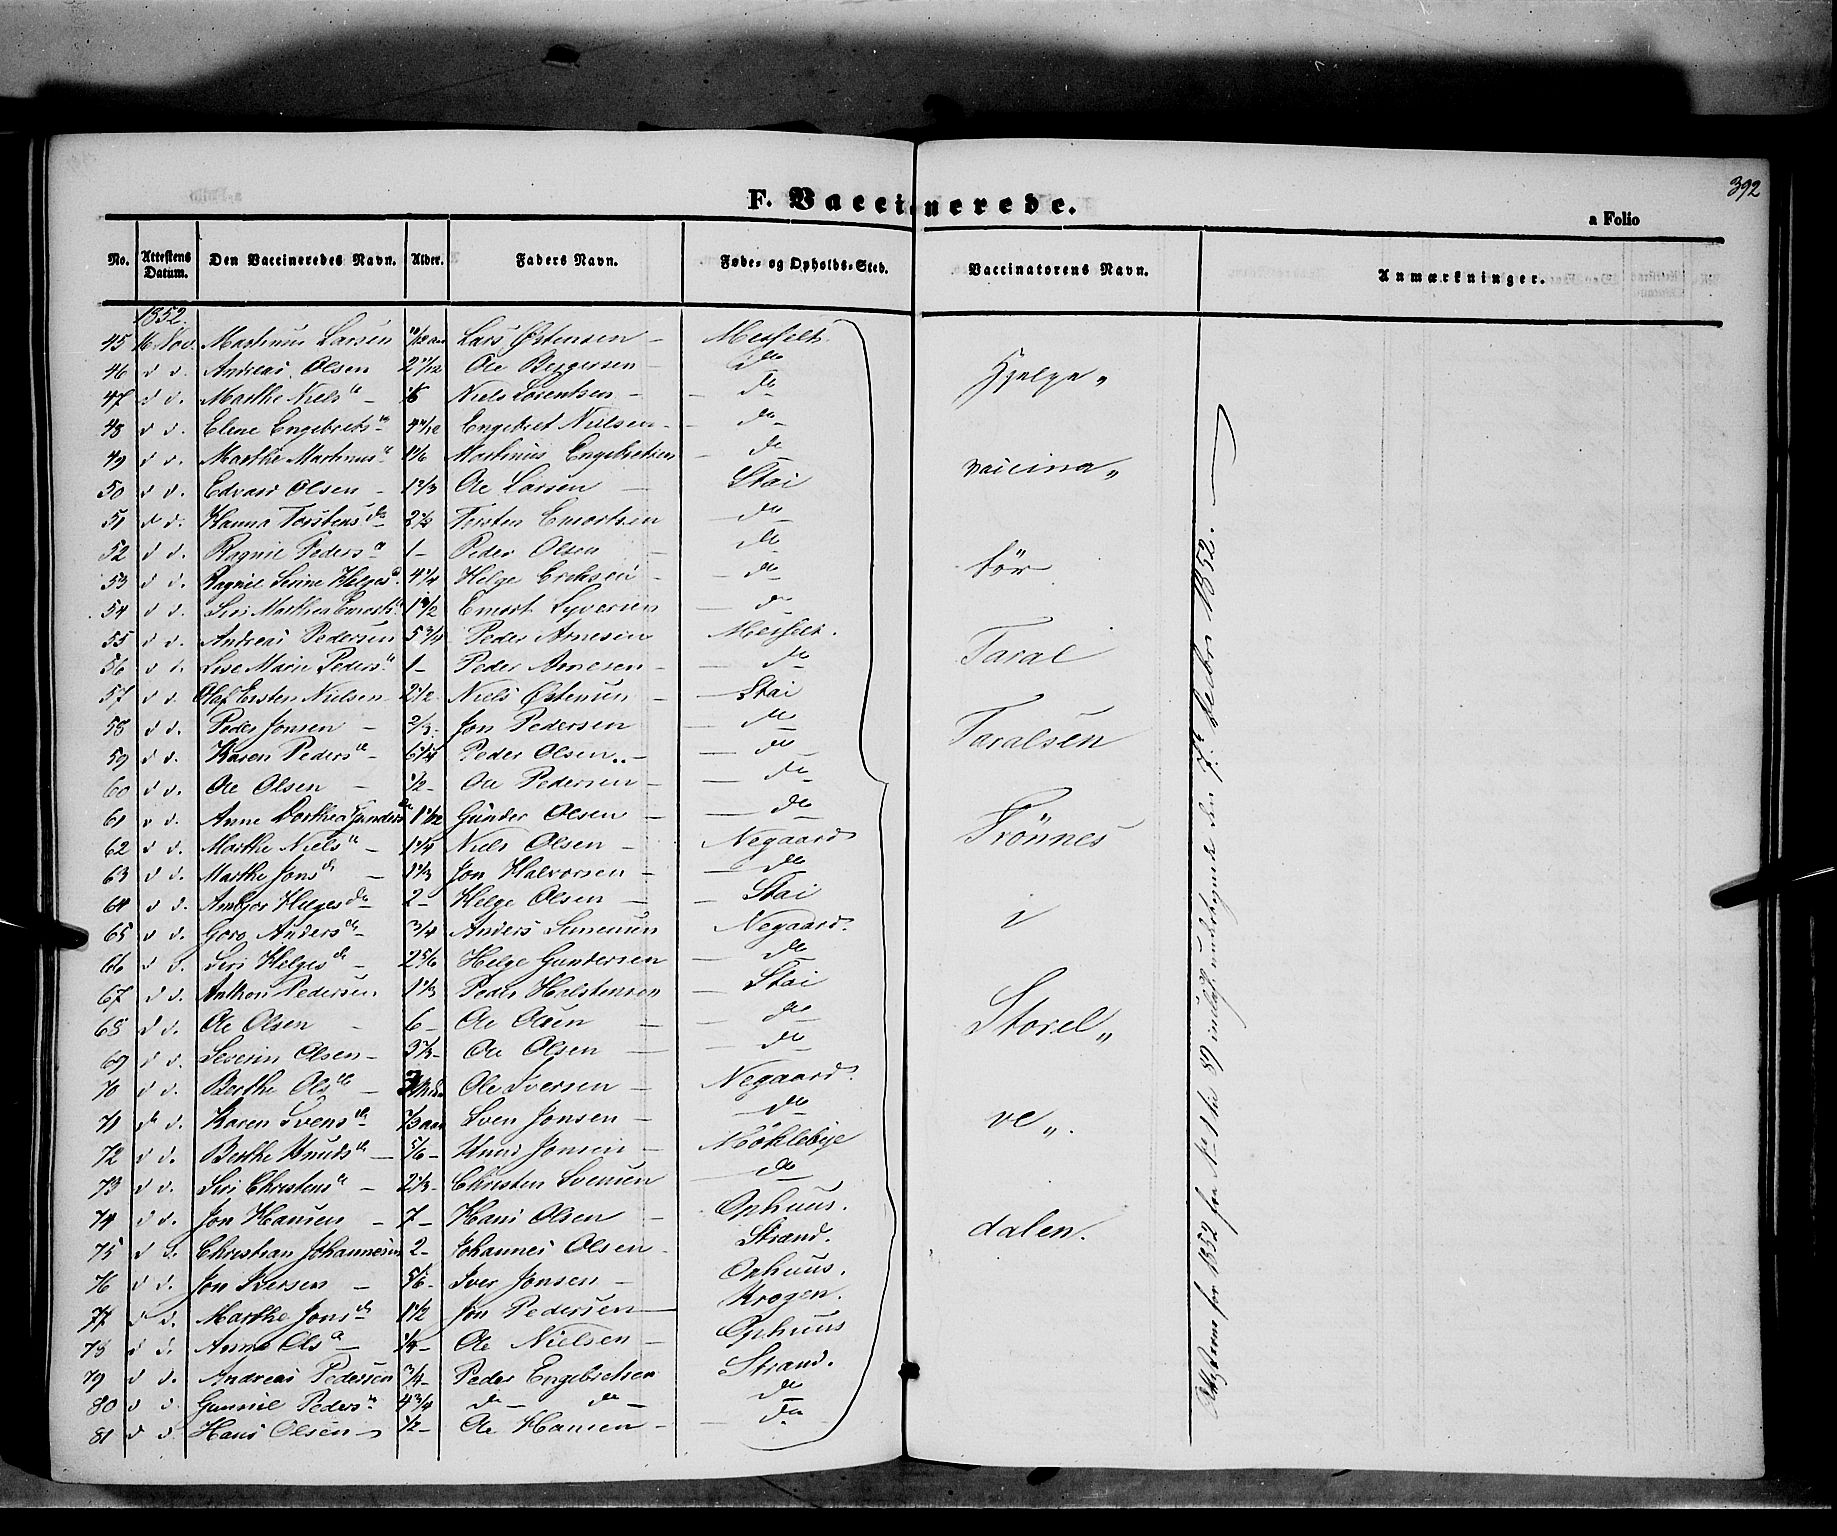 392
F. Vaccinerede.
a Folio
No. Attestens Datum. Den Vaccineredes Navn. Alder. Faders Navn. Føde- og Opholds-Sted. Vaccinatorens Navn. Anmærkninger.
1852.
45 16 Nov. Martinus Larsen Lars Østensen - Messelt.
46 d d. Andreas Olsen 2 1/12 Ole Bergersen - do
47 d d. Marthe Niels d - Niels Lorentsen - do
48 d d. Elene Engebrets d Engebret Nielsen - do
49 d d. Marthe Martinus d Martinus Engebretsen - do
50 d d. Edvard Olsen - 1 1/3 Ole Larsen - Stai
51 d d. Hanna Torstens do 2 1/2 Torsten Emortsen do
52 d d. Ragnil Peders d 1 - Peder Olsen - do
53 d d. Ragnil Serine Helges d. 4 1/4 Helge Eriksen - do
54 d d. Siri Marthea Emorts d 1 1/2 Emort Syversen - do
55 d d. Andreas Pedersen 5 3/4 Peder Arnesen Messelt.
56 d d. Lise Marie Peders d 1 - Peder Arnesen - do
57 d d. Olaf Nielsen 2 1/2 Niels Østensen - Stai
58 d d. Peder Jonsen - 2/3 - Jon Pedersen - do
59 d d. Karen Peders d - 6 1/4 Peder Olsen - do
60 d d. Ole Olsen - 1/2 - Ole Pedersen - do
61 d d. Anne Dorthea Gunders do 1 1/12 Gunder Olsen - do
62 d d. Marthe Niels d - 1 1/4 Niels Olsen - Negaard
63 d d. Marthe Jons d - 1 1/3 Jon Halvorsen - do
64 d d. Helges do 2 - Helge Olsen - Stai
65 d d. Goro Anders d - 3/4 Anders Simensen Negaard.
66 d d. Siri Helges d - 2 5/6 Helge Gundersen - do
67 d d. Anthon Pedersen 1 1/3 Peder Halstensen - Stai
68 d d. Ole Olsen - 6 - Ole Olsen - do
69 d d. Severin Olsen - Ole Olsen - do
70 d d. Berthe Ols d - Ole Iversen - Negaard.
71 d d. Karen Svens d Sven Jonsen - do
72 d d. Berthe Knuds d - 5/6 - Knud Jonsen - Møklebye
73 d d. Siri Christens d - 2 1/3 - Christen Svensen - do
74 d d. Jon Hansen - 7 - Hans Olsen - Ophuus.
75 d d. Christian Johannesen 2 - Johannes Olsen - Strand.
76 d d. Jon Iversen - 5/6 - Iver Jonsen - Ophuus.
77 d d. Marthe Jons d 1 1/2 Jon Pedersen - Krogen.
78 d d. Anne Ols d - 1/4 - Ole Nielsen - Ophuus
79 d d. Andreas Pedersen 3/4 - Peder Engebretsen Strand.
80 d d. Gunnil Peders d 4 3/4 do - do - do
81 d d. Hans Olsen - 1/2 - Ole Hansen - do
Hjelpe„
vaccina„
tör
Taral
Taralsen
Trönnes
i
Storel„
ve„.
dalen.
for 1852 fra No 1 til 89 incluss. undertegnede den 7de Decbr 1852.